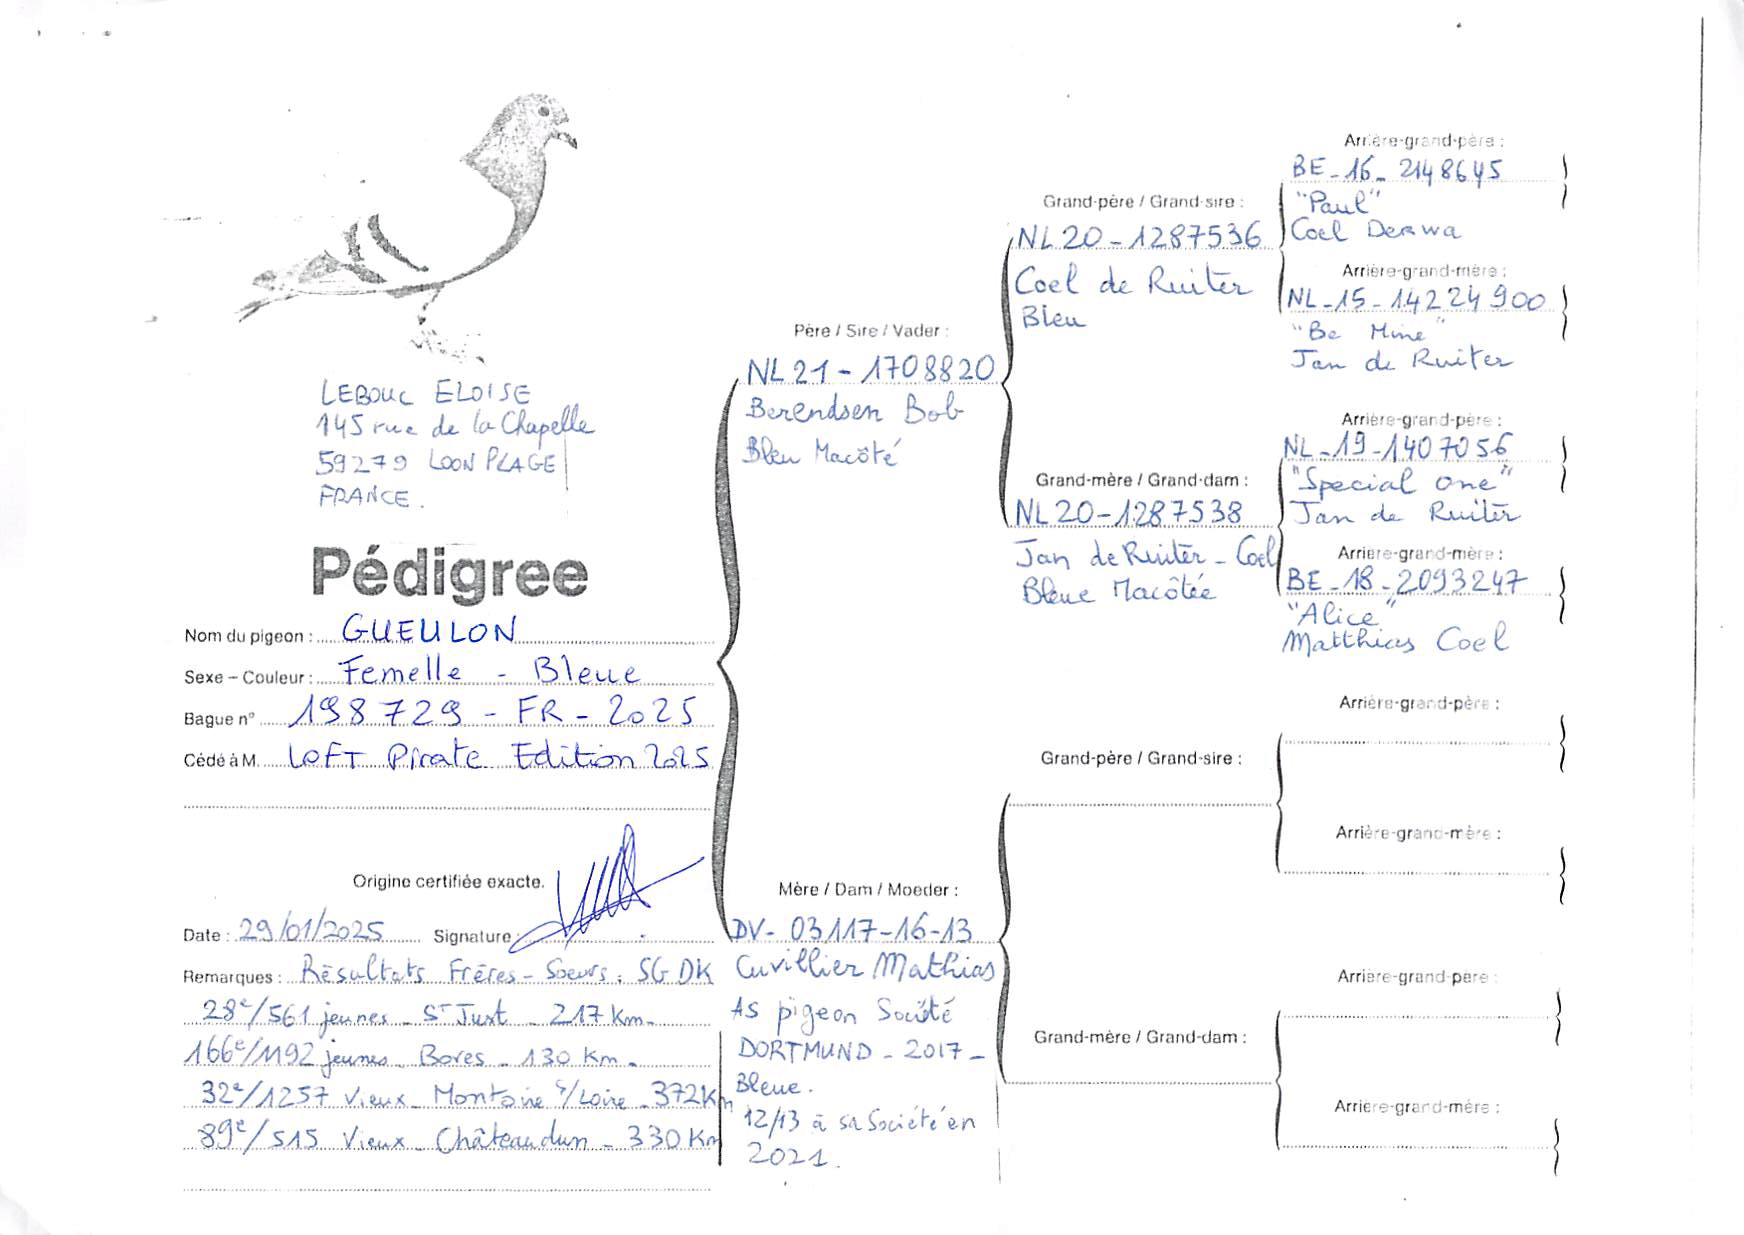 LEBOUC ELOISE
145 rue de la Chapelle
59279 LOON PLAGE
FRANCE.
Pédigree
Nom du pigeon : GUEULON
Sexe – Couleur : Femelle - Bleue
Bague n° 198729 - FR - 2025
Cédé à M. LOFT Pirate Edition 2025
Origine certifiée exacte.
Date : 29/01/2025 Signature :
Remarques : Résultats Frères - Soeurs : SG DK
28e/561 jeunes - St Just - 217 Km -
166e/1192 jeunes - Boves - 130 Km -
32e/1257 Vieux - Montoire s/Loire - 372Km
89e/515 Vieux - Châteaudun - 330 Km
Père / Sire / Vader :
NL 21 - 1708820
Berendsen Bob
Bleu Macôté
Mère / Dam / Moeder :
DV - 03117-16-13
Cuvillier Mathias
As pigeon Société
DORTMUND - 2017 -
Bleue.
12/13 à sa Société en
2021.
Grand-père / Grand-sire :
NL 20 - 1287536
Coel de Ruiter
Bleu
Grand-mère / Grand-dam :
NL 20 - 1287538
Jan de Ruiter - Coel
Bleue Macôtée
Grand-père / Grand-sire :
Grand-mère / Grand-dam :
Arrière-grand-père :
BE - 16 - 2148645
"Paul"
Coel Derwa
Arrière-grand-mère :
NL - 15 - 14224900
"Be Mine"
Jan de Ruiter
Arrière-grand-père :
NL - 19 - 1407056
"Special One"
Jan de Ruiter
Arrière-grand-mère :
BE - 18 - 2093247
"Alice"
Matthias Coel
Arrière-grand-père :
Arrière-grand-mère :
Arrière-grand-père :
Arrière-grand-mère :